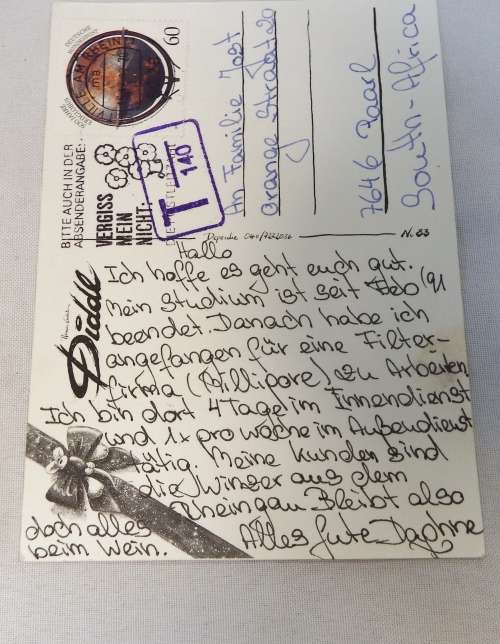 DEUTSCHE BUNDESPOST
60
VILLE AM RHEIN
BITTE AUCH IN DER
ABSENDERANGABE:
VERGISS
MEIN
NICHT:
T 140
An Familie Jost
Orange Straat 20
7646 Paarl
South-Africa
Depesche
N. 33
Diddl
Hallo
Ich hoffe es geht euch gut.
Mein Studium ist seit Feb '91
beendet. Danach habe ich
angefangen für eine Filter-
firma (Millipore) zu Arbeiten
Ich bin dort 4 Tage im Innendienst
und 1x pro woche im Außendienst
tätig. Meine Kunden sind
die Winzer aus dem
Rheingau Bleibt also
doch alles
beim Wein.
Alles Gute Daphne